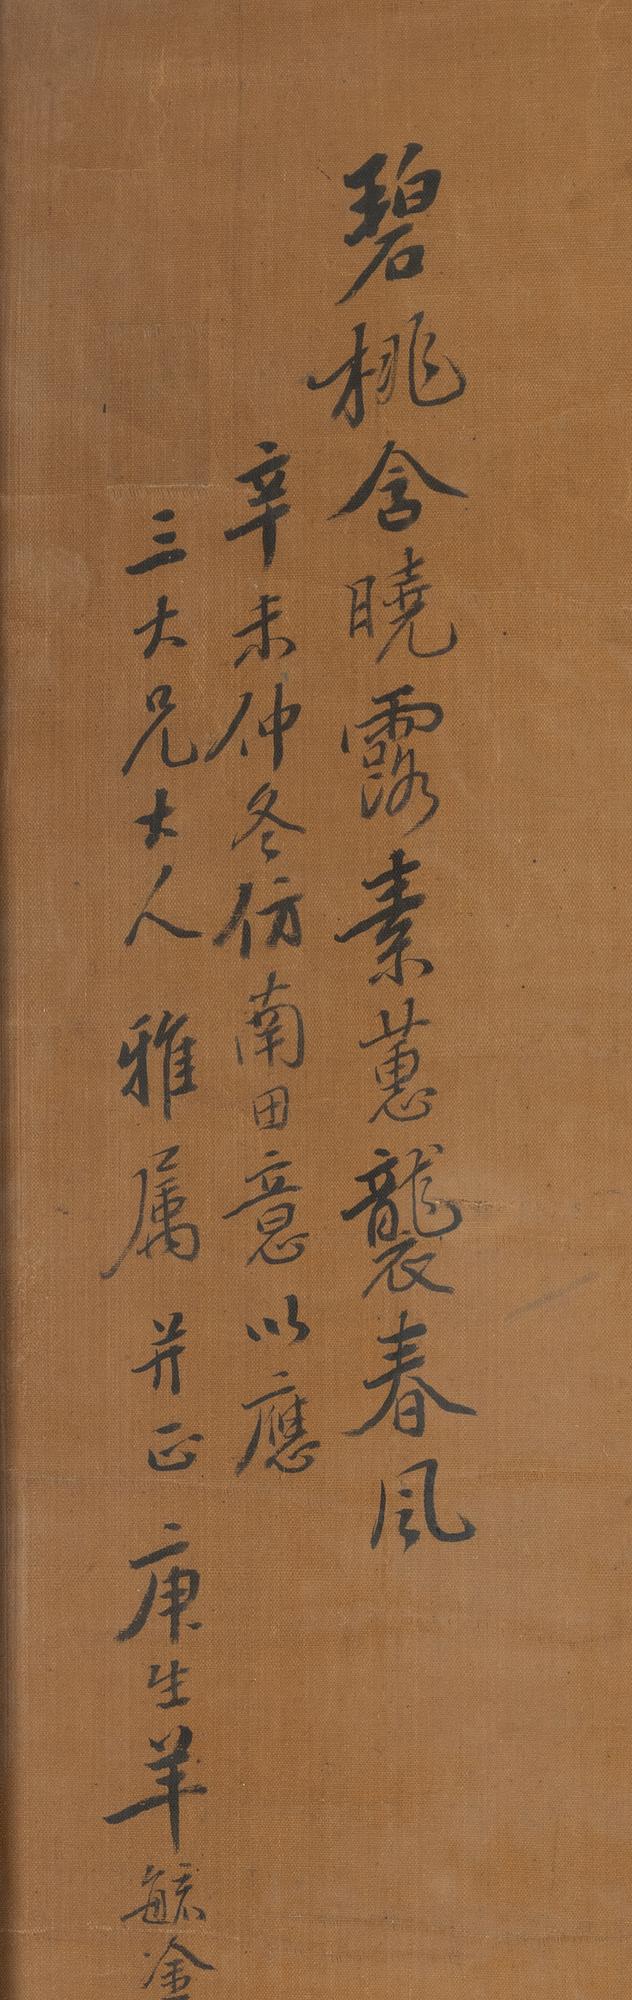 碧桃含曉露素蕙襲春風
辛未仲冬仿南田意以應
三大兄大人雅属并正庚生羊毓金